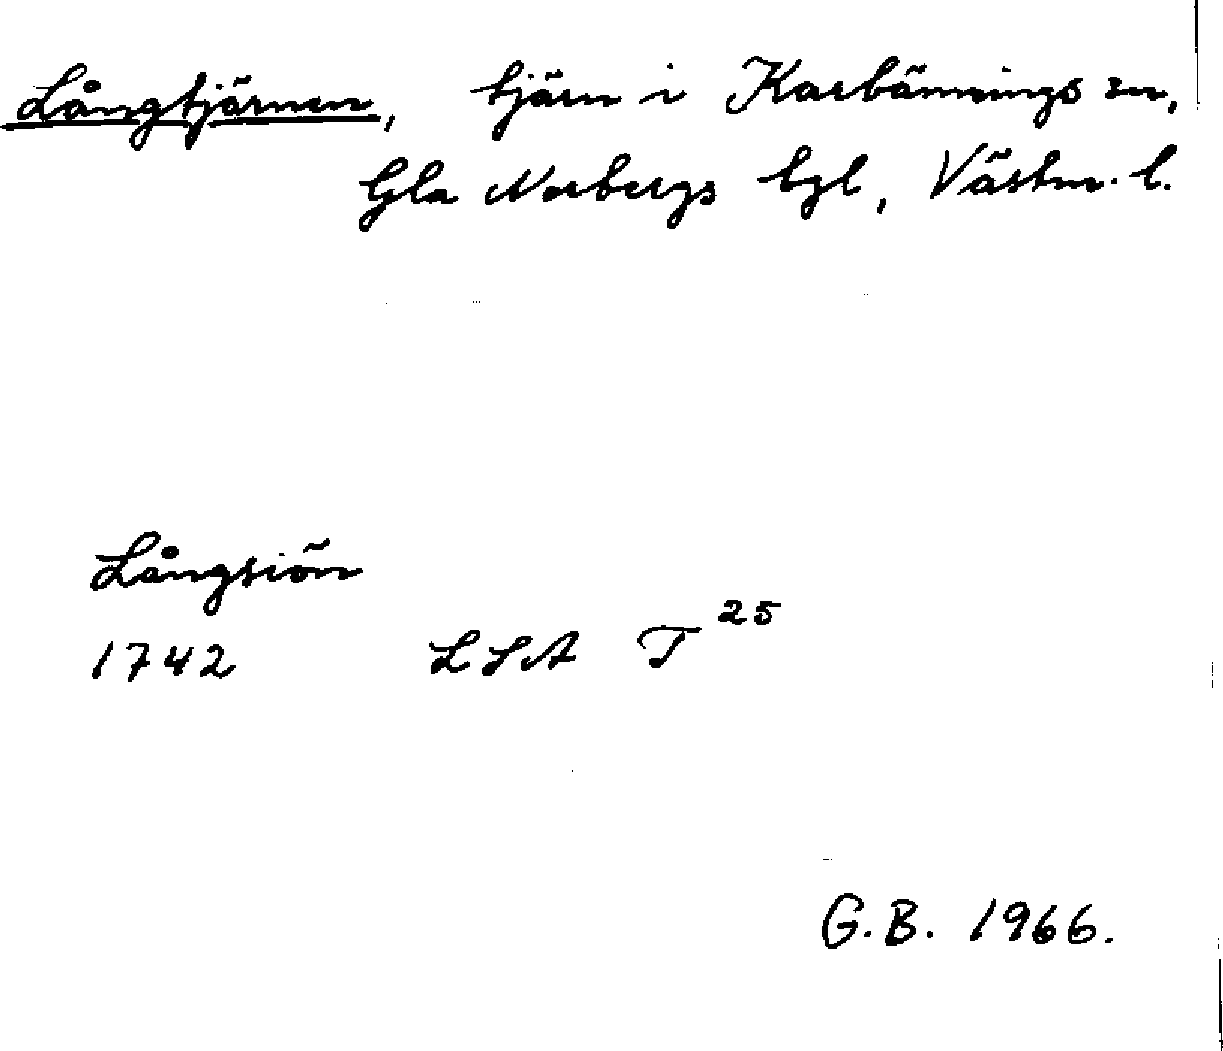 Långtjärnen, tjärn i Karbännings sn,
Gla Norbergs bgl, Västm. l.
Långsiön
1742 LSA T 25
G.B. 1966.